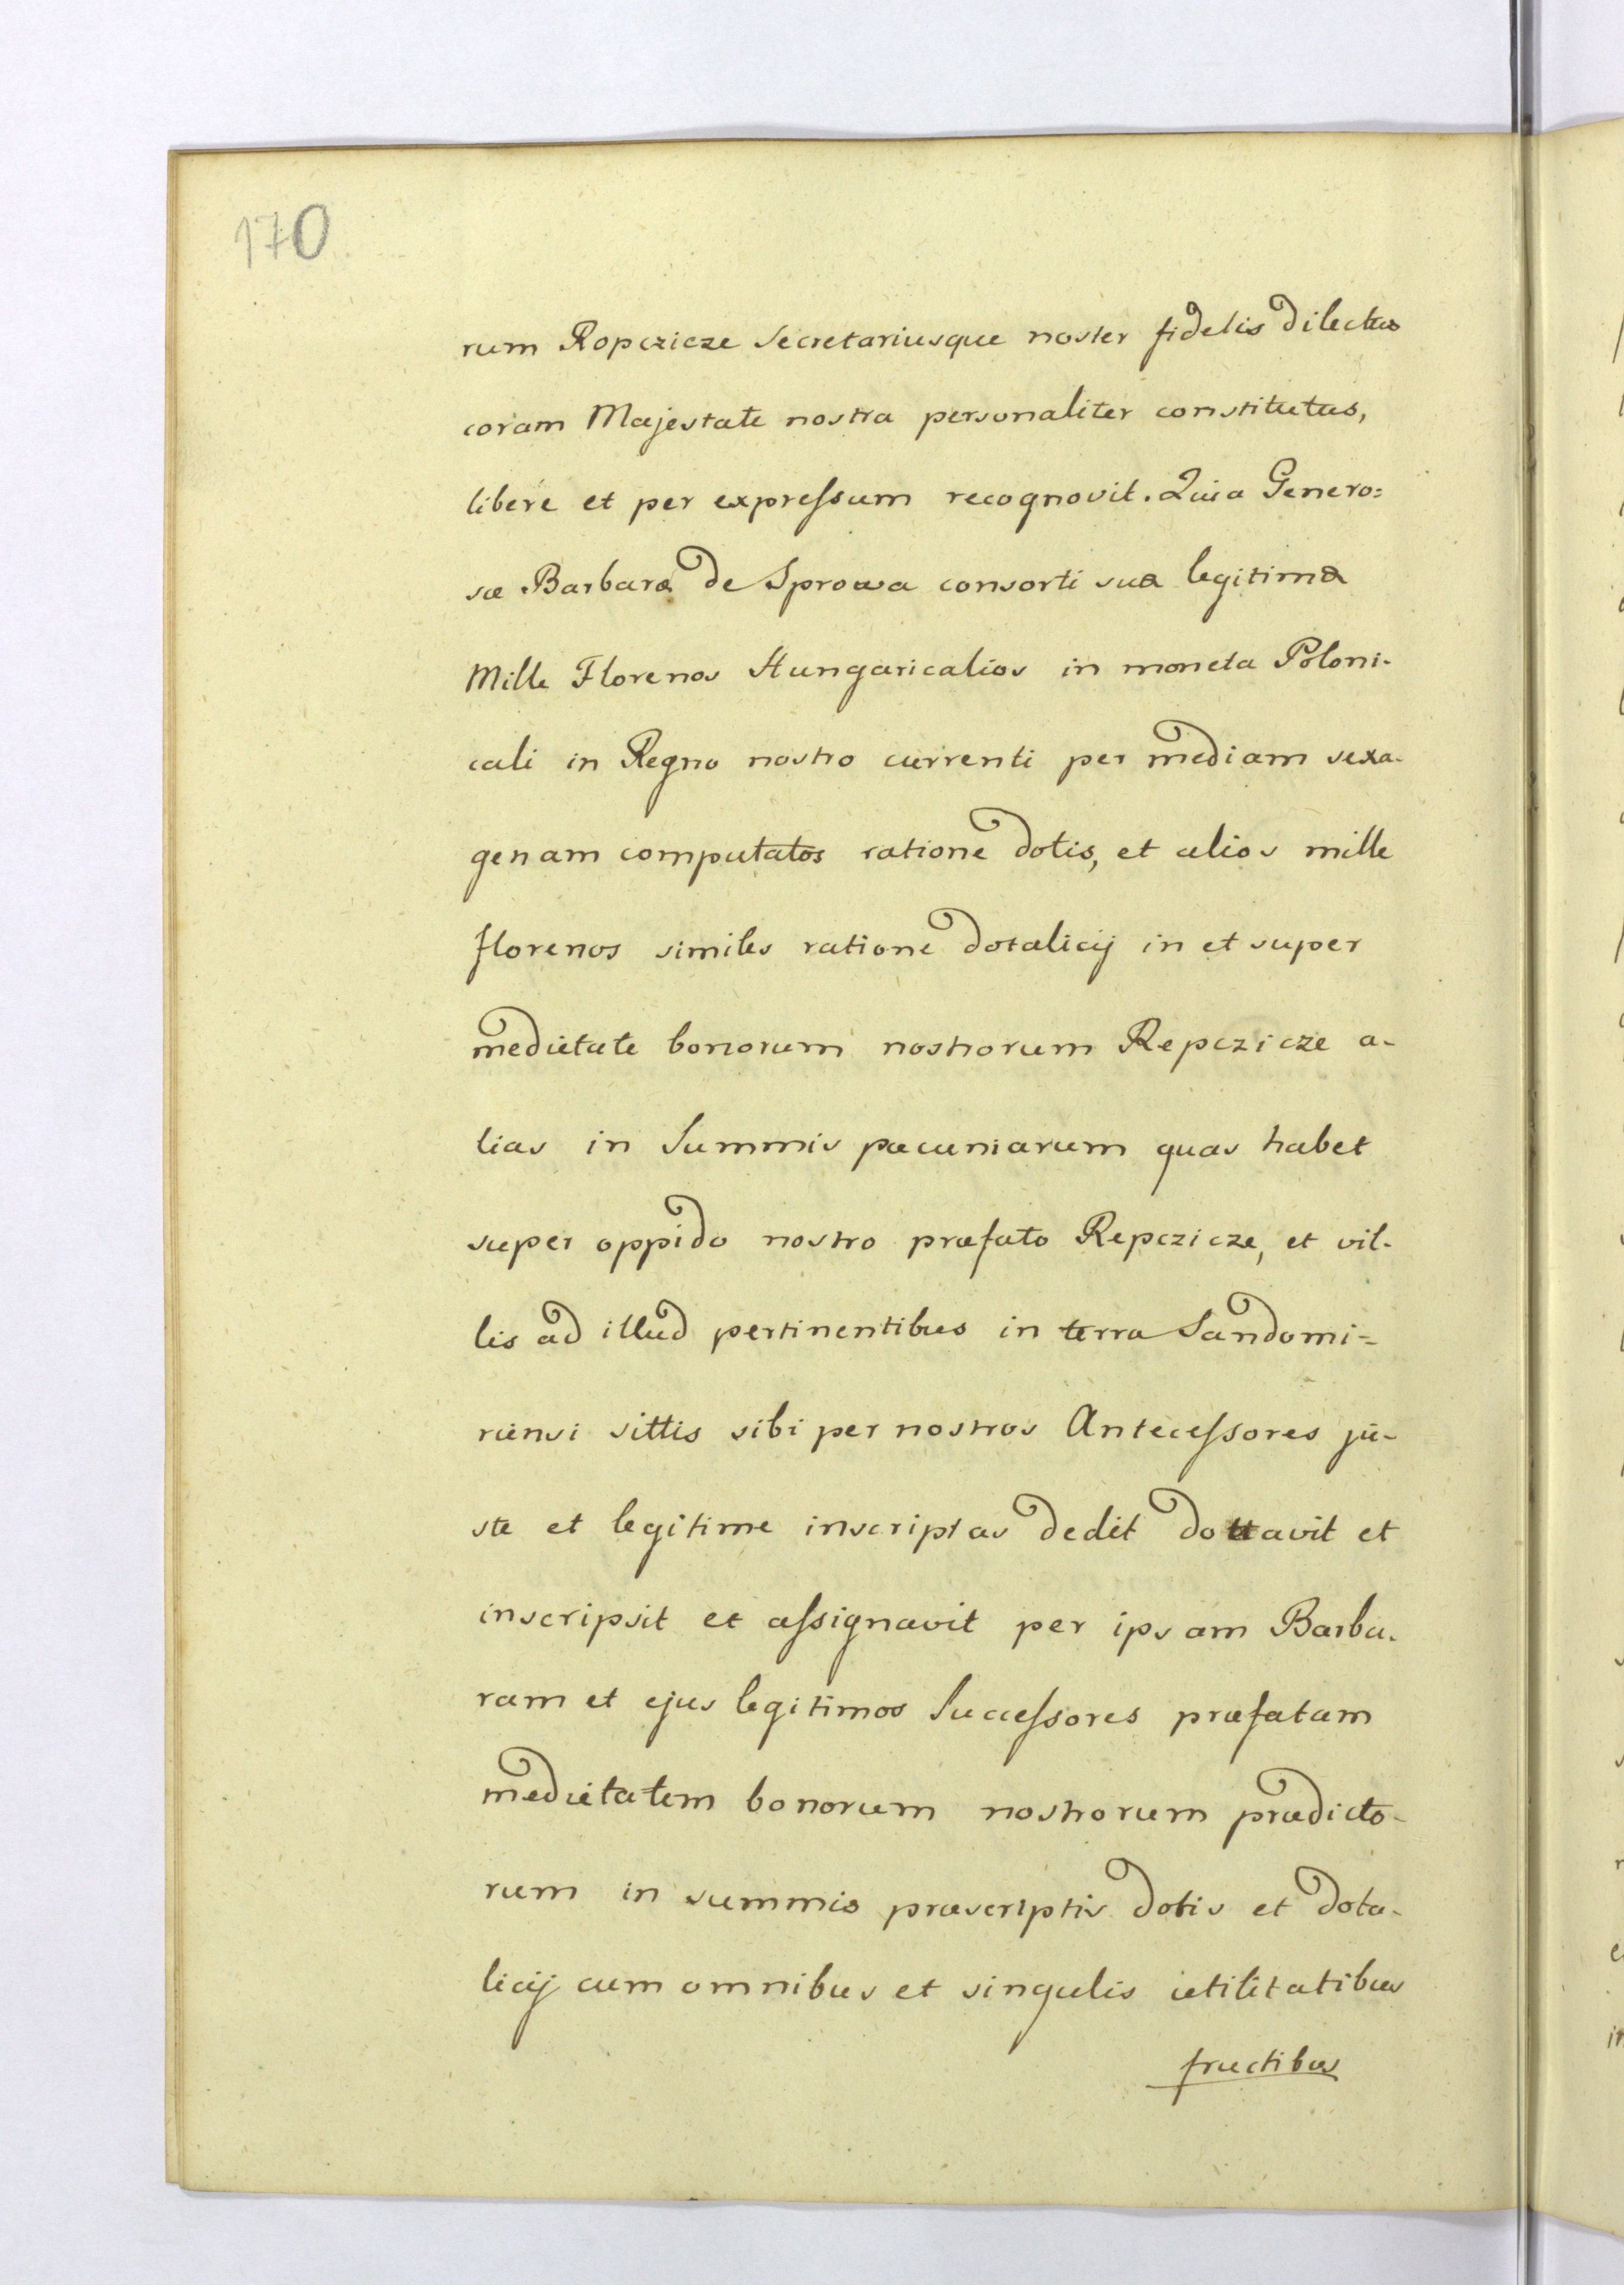 170
rum Ropczicze Secretariusque noster fidelis dilectus
coram Majestate nostra personaliter constitutus,
libere et per expreſsum recognovit. Quia Genero=
sæ Barbaræ de Sprowa consorti suæ legitimæ
Mille Florenos Hungaricalios in moneta Poloni-
cali in Regno nostro currenti per mediam sexa-
genam computatos ratione dotis, et alios mille
florenos similes ratione dotalicij in et super
medietate bonorum nostrorum Repczicze a-
lias in Summis pæcuniarum quas habet
super oppido nostro præfato Repczicze, et vil-
lis ad illud pertinentibus in terra Sandomi=
riensi sittis sibi per nostros Anteceſsores ju-
ste et legitime inscriptas dedit dottavit et
inscripsit et aſsignavit per ipsam Barba-
ram et ejus legitimos Succeſsores præfatam
medietatem bonorum nostrorum prædicto-
rum in summis præscriptis dotis et dota-
licij cum omnibus et singulis utilitatibus
fructibus